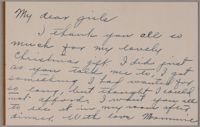 My dear girls
I thank you all so
much for my lovely
Christmas gift I did just
as you told me to, I got
something I had wanted for
so long, but thought I could
not afford, I want you all
to see it in my room after
dinner. With love Mommie